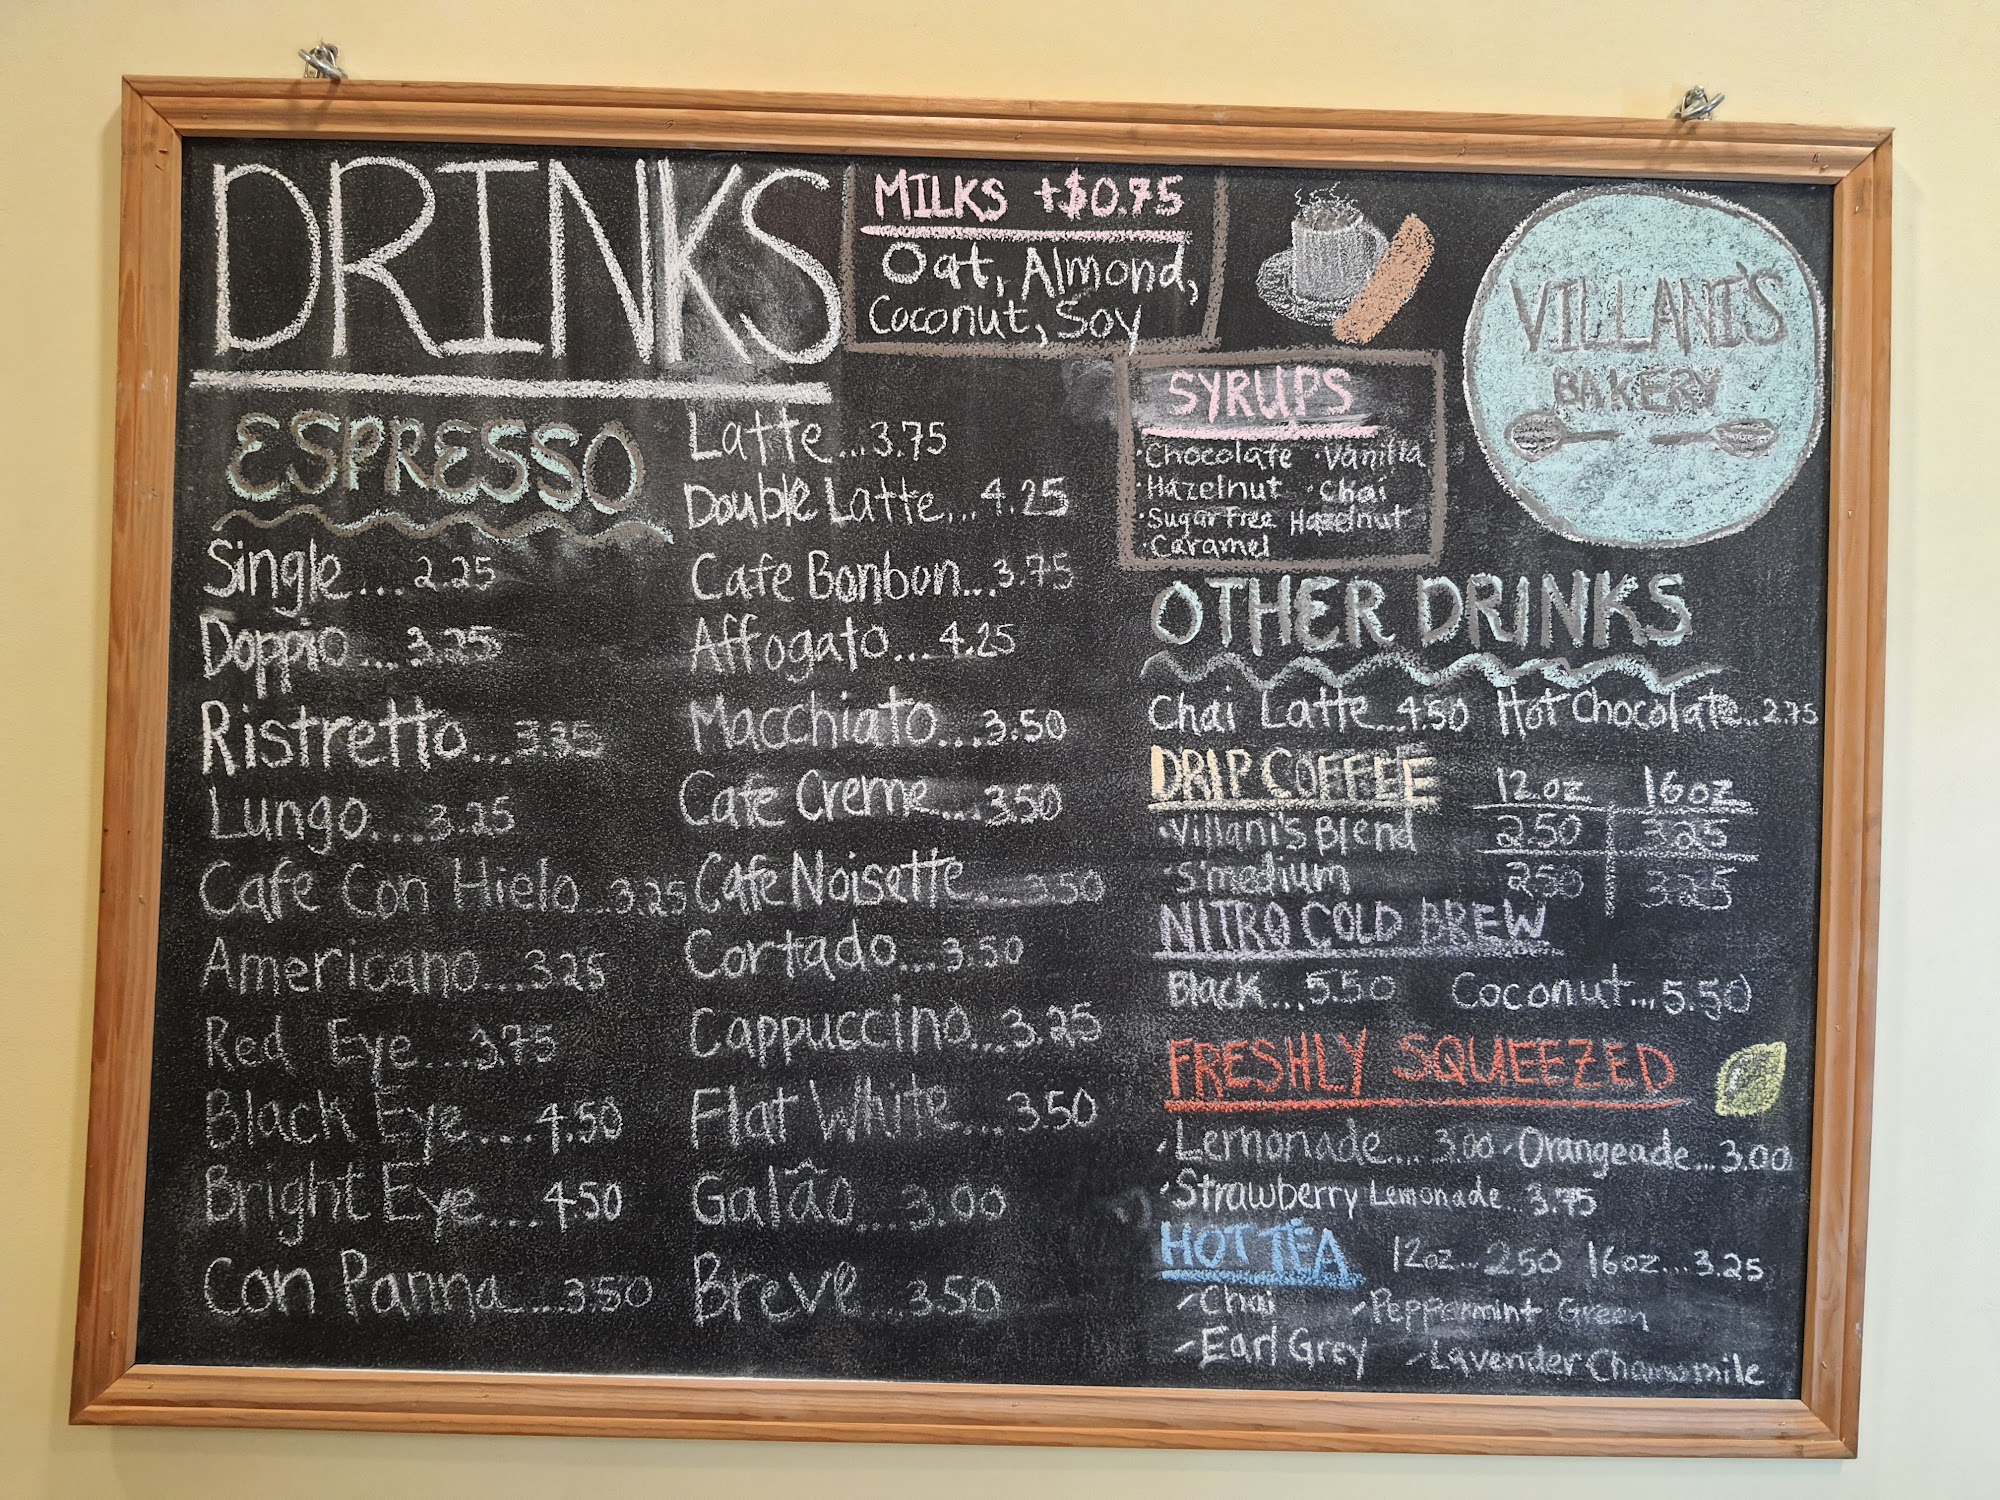 DRINKS
MILKS +$0.75
Oat, Almond,
Coconut, Soy
VILLANI'S
BAKERY
ESPRESSO
Single... 2.25
Doppio... 3.25
Ristretto...
Lungo... 3.25
Cafe Con Hielo...3.25
Americano...3.25
Red Eye...3.75
Black Eye....4.50
Bright Eye...4.50
Con Panna....3.50
Latte...3.75
Double Latte... 4.25
Cafe Bonbon...3.75
Affogato...4.25
Macchiato...3.50
Cafe Creme...3.50
Cafe Noisette...3.50
Cortado...3.50
Cappuccino...3.25
Flat White...3.50
Galão...3.00
Breve...3.50
SYRUPS
·Chocolate ·Vanilla
·Hazelnut ·Chai
·Sugar Free Hazelnut
·Caramel
OTHER DRINKS
Chai Latte...4.50 Hot Chocolate...2.75
DRIP COFFEE 12oz 16oz
·Villani's Blend 2.50 3.25
·S'medium 2.50 3.25
NITRO COLD BREW
Black....5.50 Coconut...5.50
FRESHLY SQUEEZED
-Lemonade.... 3.00 -Orangeade...3.00
·Strawberry Lemonade...3.75
HOT TEA 12oz...2.50 16oz...3.25
-Chai -Peppermint Green
-Earl Grey -Lavender Chamomile